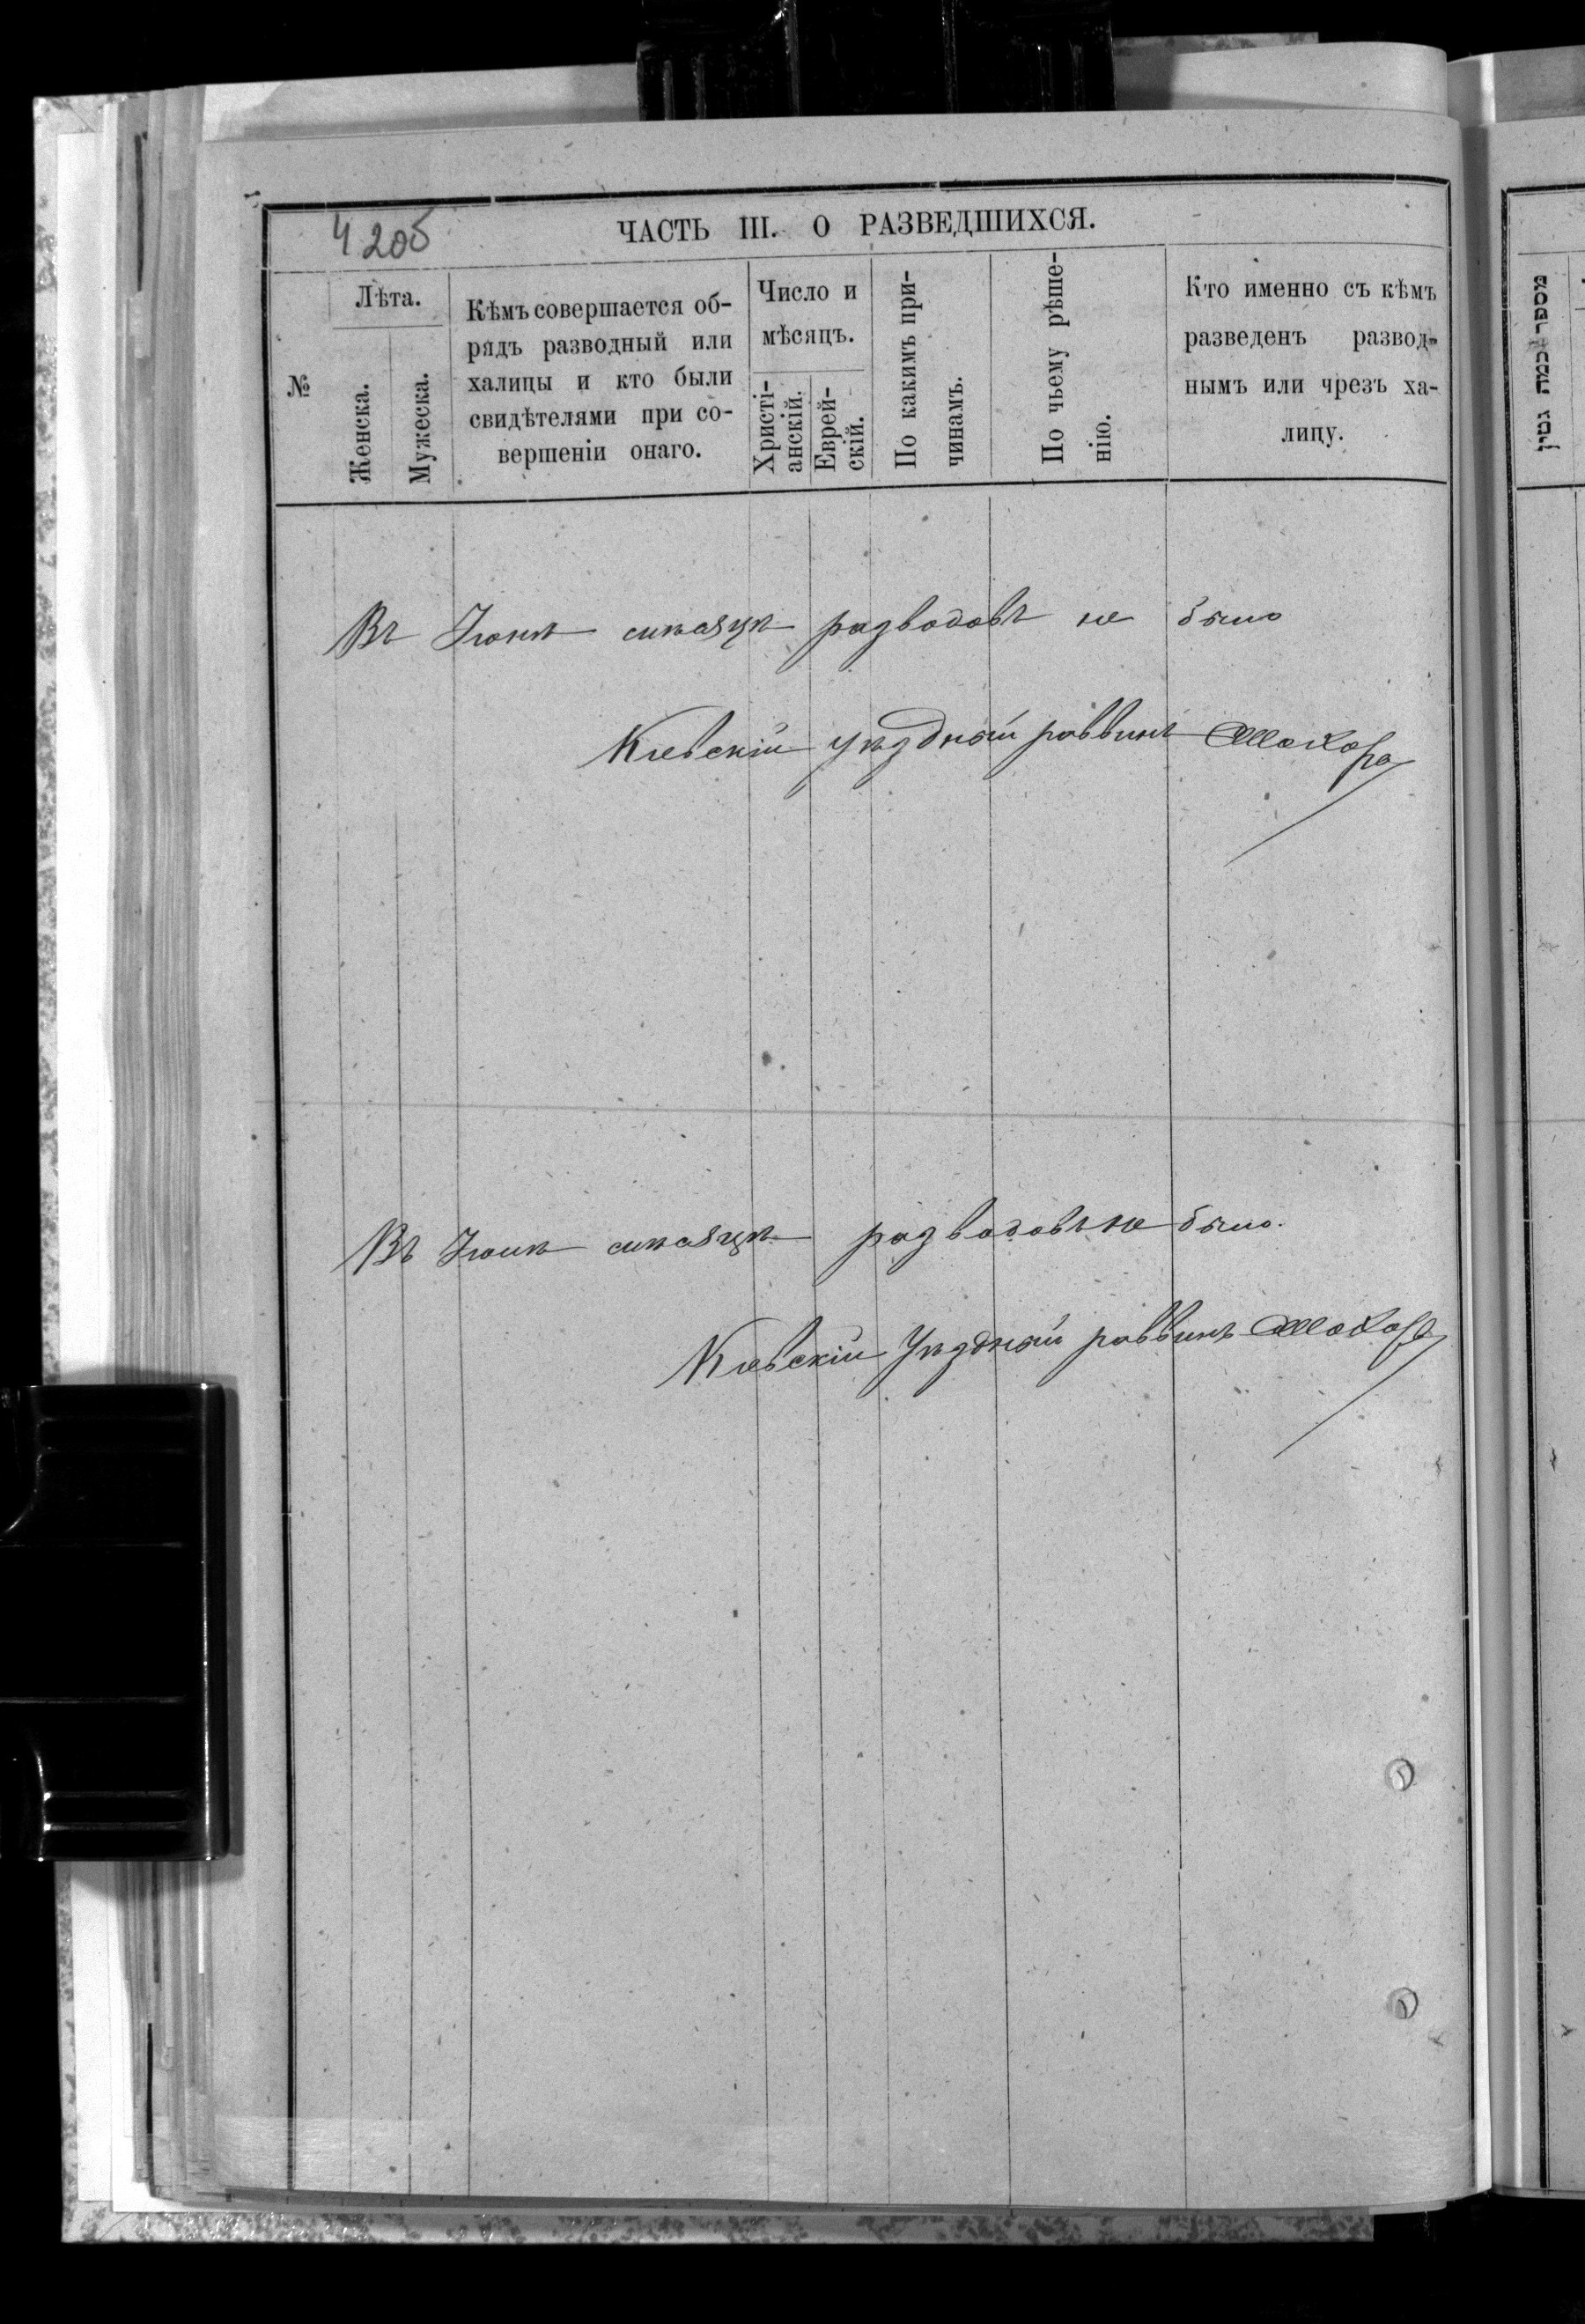 4 205
ЧАСТЬ III. О РАЗВЕДШИХСЯ.
№
Лѣта.
Женска.
Мужеска.
Кѣмъ совершается об-
рядъ разводный или
халицы и кто были
свидѣтелями при со-
вершеніи онаго.
Число и
мѣсяцъ.
Христі-
анскій.
Еврей-
скій.
По какимъ при-
чинамъ.
По чьему рѣше-
нію.
Кто именно съ кѣмъ
разведенъ развод-
нымъ или чрезъ ха-
лицу.
מספר כמה גטין
Въ мѣсяцѣ разводовъ не было
Кіевскій уѣздный раввинъ
Въ мѣсяцѣ разводовъ не было.
Кіевскій Уѣздный раввинъ